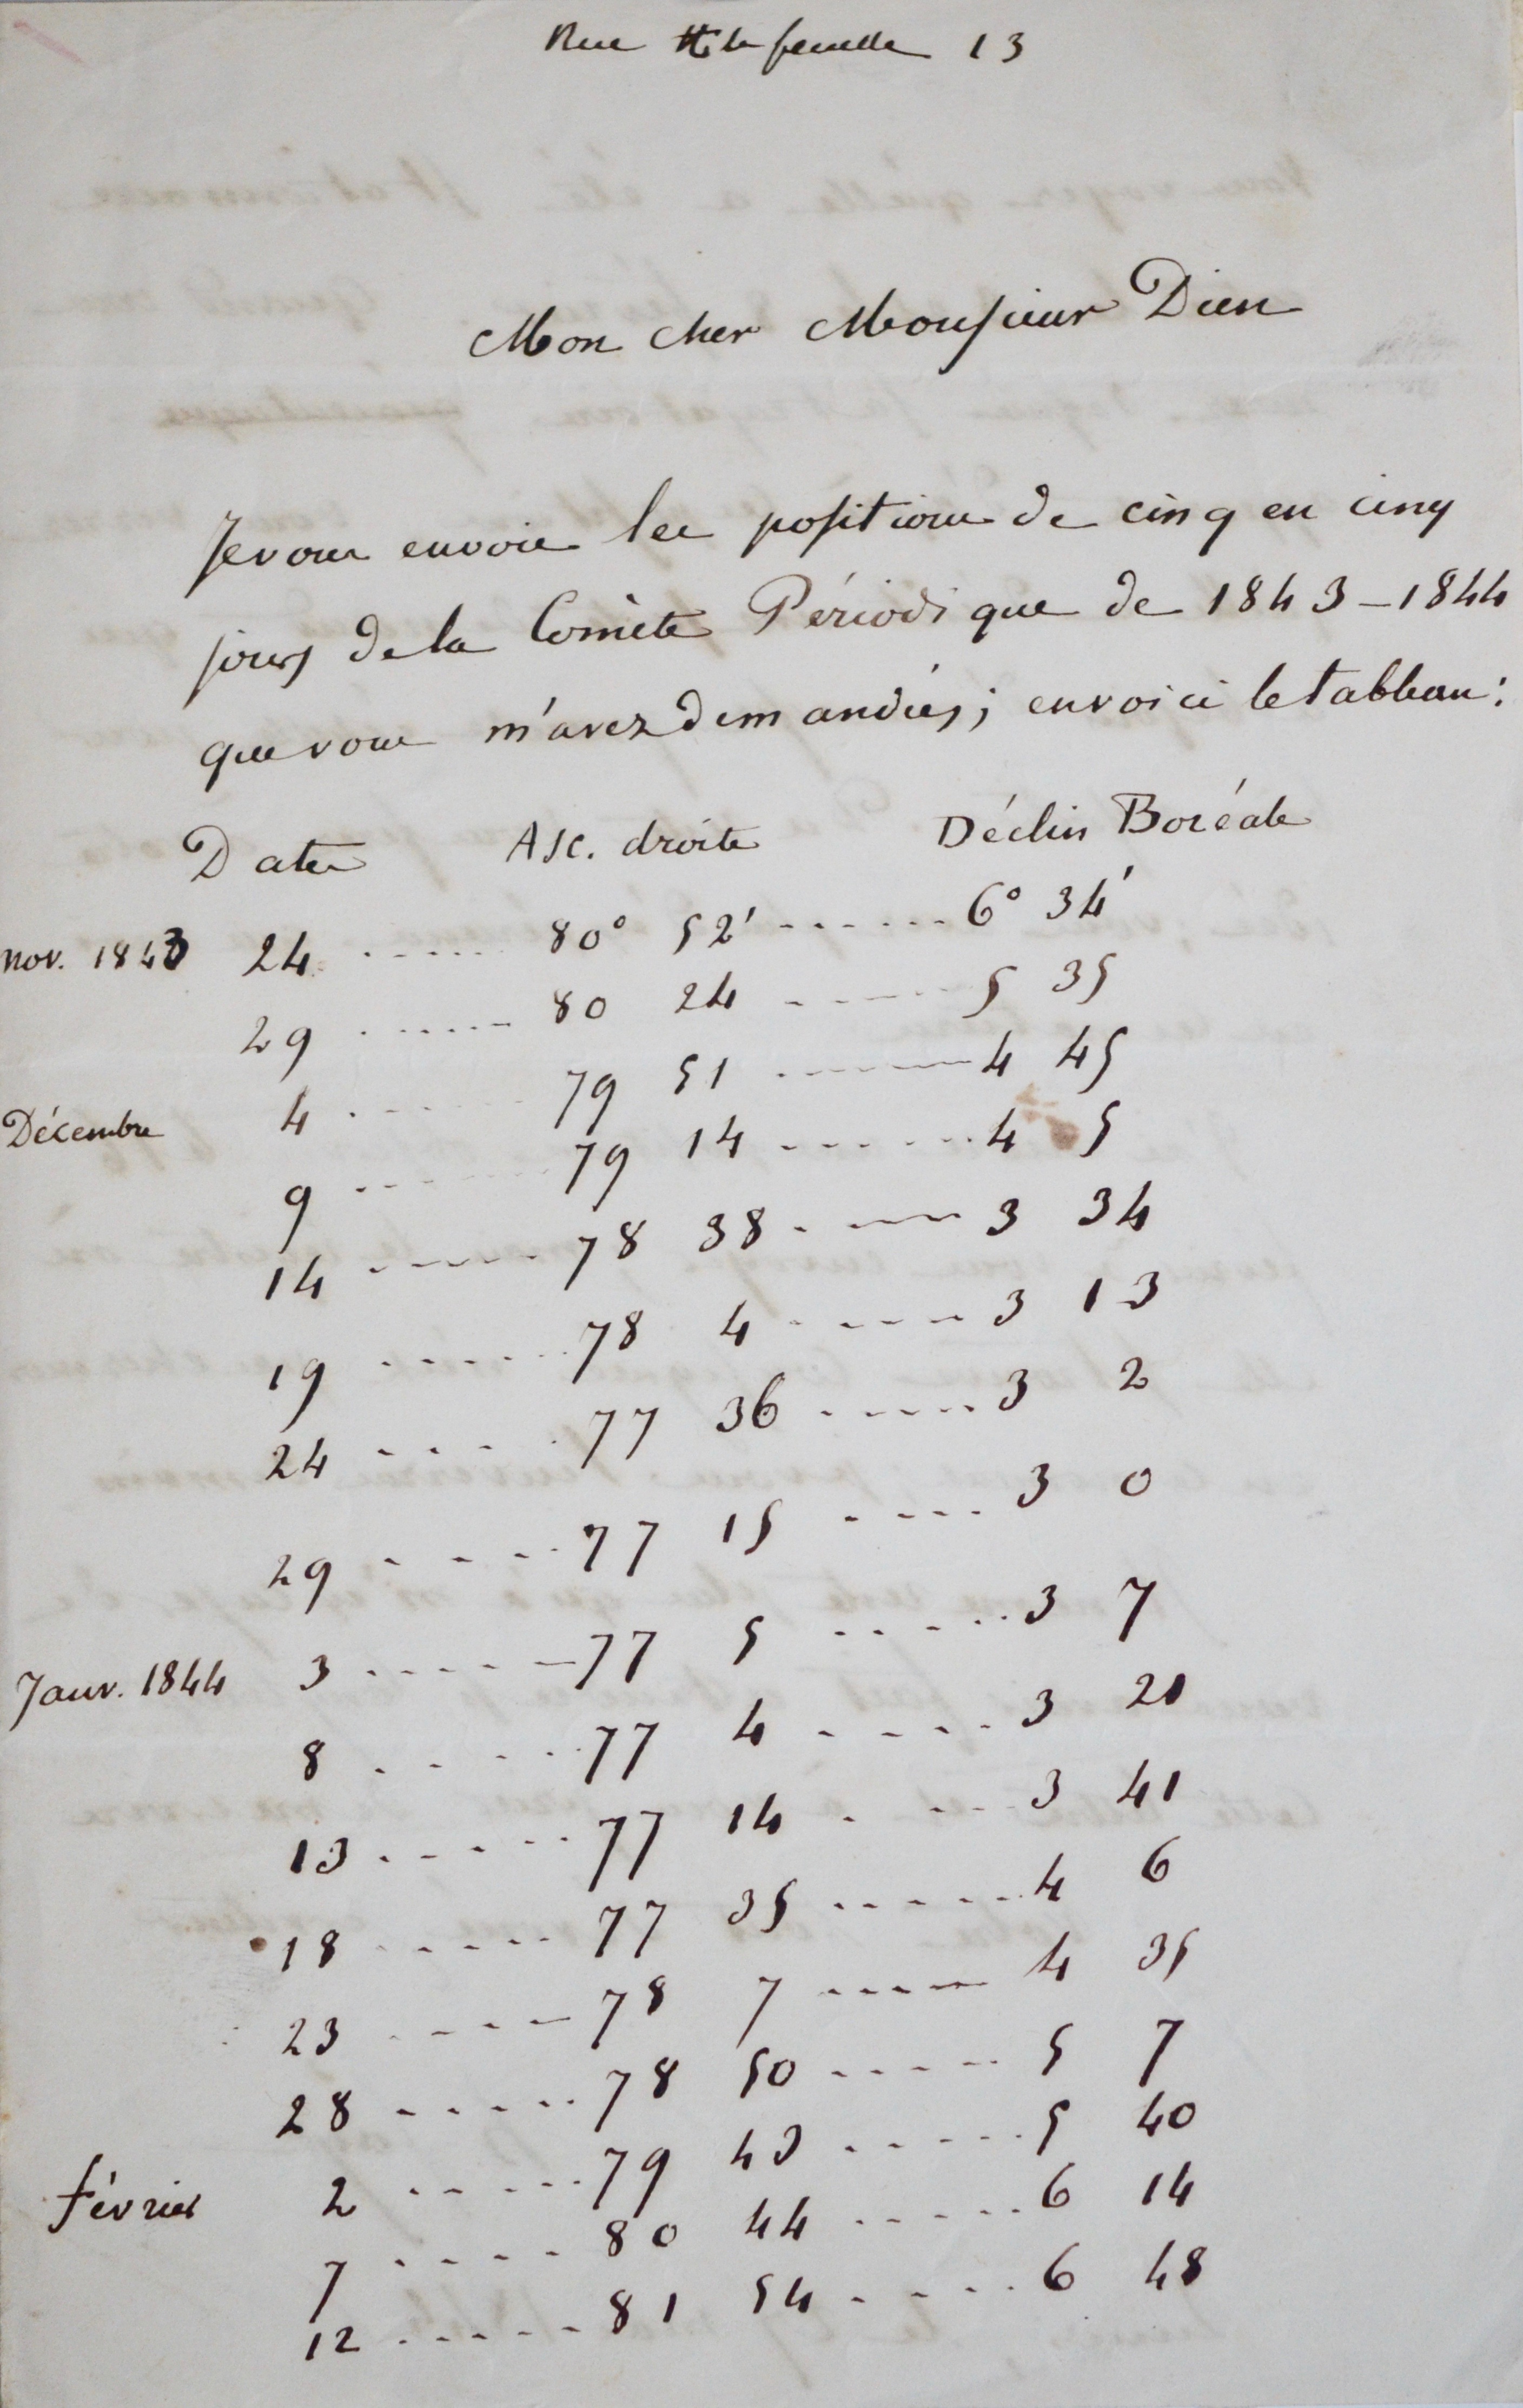 Rue Hautefeuille 13
Mon cher Monsieur Dien
Je vous envoie les positions de cinq en cinq
jours de la Comète Périodique de 1843 – 1844
que vous m'avez demandées; en voici le tableau:
Dates Asc. droite Déclin Boréale
nov. 1843 24 ...... 80° 52' ....... 6° 34'
29 ...... 80 24 ...... 5 35
Décembre 4 ...... 79 51 ...... 4 45
9 ...... 79 14 ...... 4 5
14 ...... 78 38 ...... 3 34
19 ...... 78 4 ...... 3 13
24 ..... 77 36 ..... 3 2
29 .... 77 15 .... 3 0
Janv. 1844 3 ...... 77 5 ..... 3 7
8 ..... 77 4 ..... 3 21
13 ..... 77 14 .... 3 41
18 ..... 77 35 ..... 4 6
23 ..... 78 7 ..... 4 35
28 ..... 78 50 ..... 5 7
février 2 ..... 79 43 ..... 5 40
7 .... 80 44 ..... 6 14
12 ..... 81 54 .... 6 48